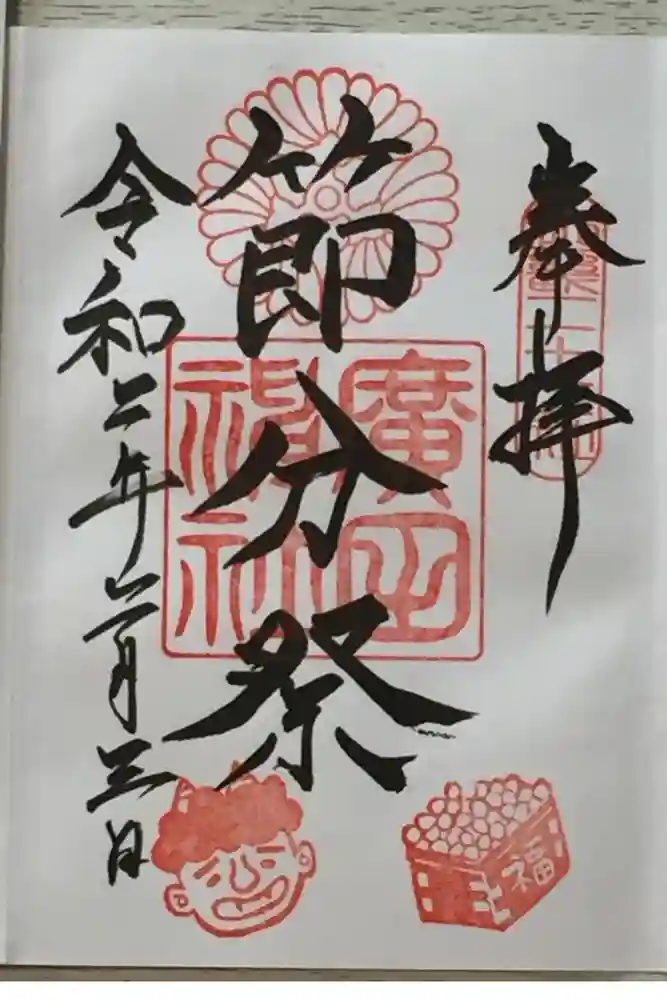 奉拝
節分祭
廣田
神社
令和二年二月三日
福